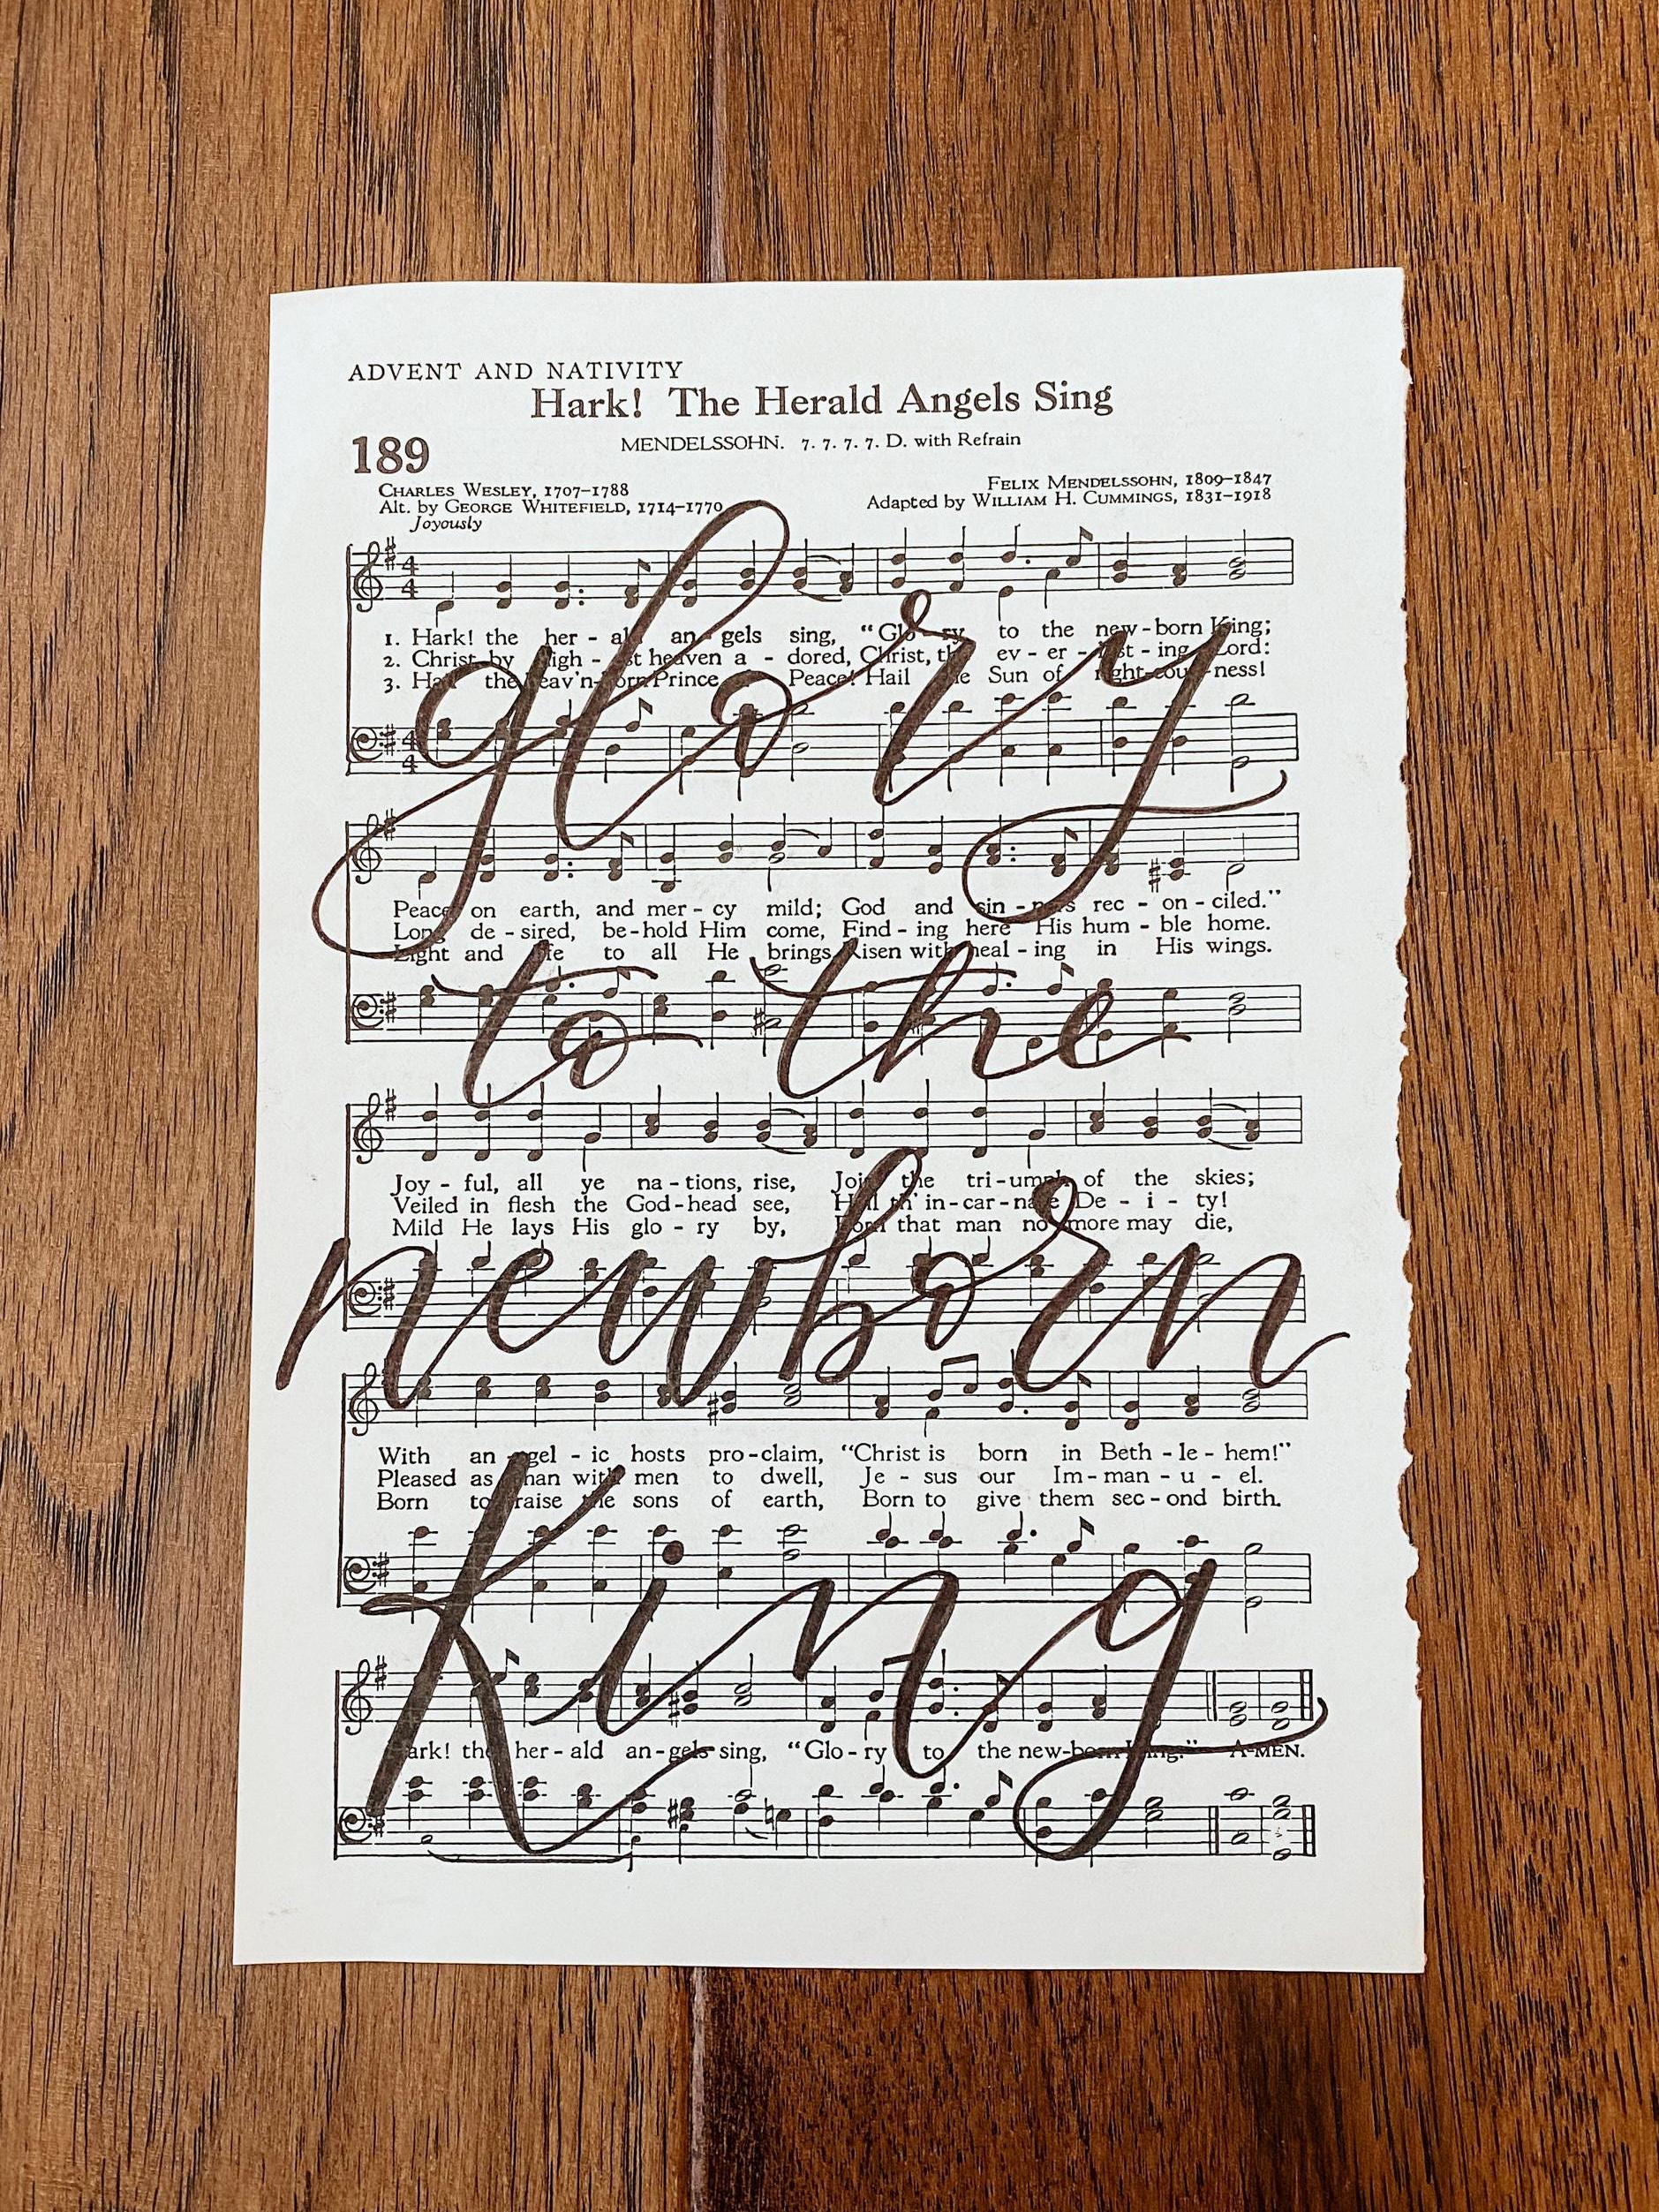 ADVENT AND NATIVITY
Hark! The Herald Angels Sing
189
MENDELSSOHN. 7. 7. 7. 7. D. with Refrain
CHARLES WESLEY, 1707–1788
Alt. by GEORGE WHITEFIELD, 1714–1770
FELIX MENDELSSOHN, 1809–1847
Adapted by WILLIAM H. CUMMINGS, 1831–1918
Joyously
1. Hark! the her - ald an - gels sing, “Glo - ry to the new - born King;
2. Christ, by high - est heaven a - dored, Christ, the ev - er - last - ing Lord:
3. Hail the heav'n-born Prince of Peace! Hail the Sun of right-eous-ness!
glory
Peace on earth, and mer - cy mild; God and sin - ners rec - on - ciled.”
Long de - sired, be-hold Him come, Find - ing here His hum - ble home.
Light and life to all He brings, Risen with heal - ing in His wings.
to the
Joy - ful, all ye na - tions, rise, Join the tri - umph of the skies;
Veiled in flesh the God-head see, Hail th' in-car-nate De - i - ty!
Mild He lays His glo - ry by, Born that man no more may die,
newborn
With an - gel - ic hosts pro-claim, “Christ is born in Beth - le - hem!”
Pleased as man with men to dwell, Je - sus our Im - man - u - el.
Born to raise the sons of earth, Born to give them sec - ond birth.
King
Hark! the her - ald an - gels sing, “Glo - ry to the new-born King.” A-MEN.